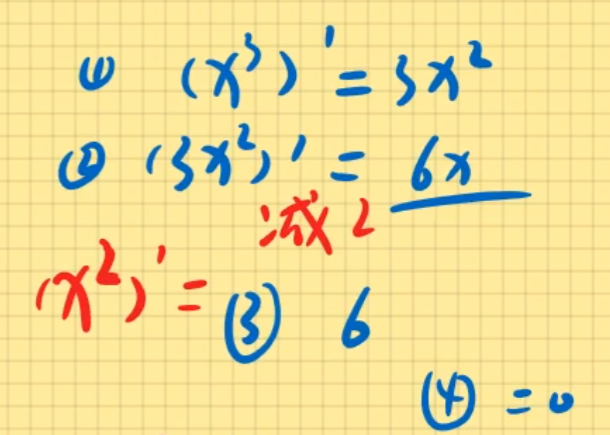 ① (x³)' = 3x²
② (3x²)' = 6x
减2
(x²)' =
③ 6
④ = 0